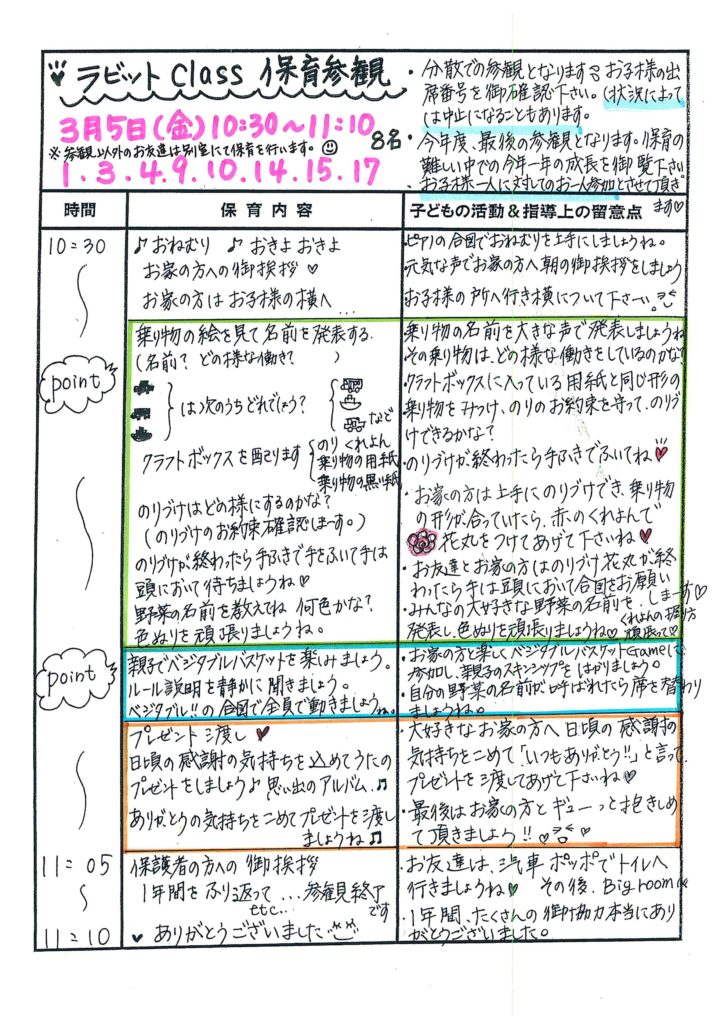 ラビット Class 保育参観
3月5日(金)10:30〜11:10
8名
※参観以外のお友達は別室にて保育を行います。
1.3.4.9.10.14.15.17
・分散での参観となります お子様の出
席番号を御確認下さい。(状況によって
は中止になることもあります。
・今年度、最後の参観となります。保育の
難しい中での今年一年の成長を御覧下さい
お子様一人に対してのお一人参加とさせて頂き
ます♡
時間
保育内容
子どもの活動&指導上の留意点
10:30
♪おねむり ♪おきよおきよ
お家の方への御挨拶♥
お家の方はお子様の横へ…
ピアノの合図でおねむりを上手にしましょうね。
元気な声でお家の方へ朝の御挨拶をしましょう
お子様の所へ行き横について下さーい。
point
乗り物の絵を見て名前を発表する。
(名前? どの様な働き? )
は次のうちどれでしょう?
など
クラフトボックスを配ります
のり くれよん
乗り物の用紙
乗り物の黒い紙
のりづけはどの様にするのかな?
(のりづけのお約束確認しまーす。)
のりづけが終わったら手ふきで手をふいて手は
頭において待ちましょうね♥
野菜の名前を教えてね 何色かな?
色ぬりを頑張りましょうね。
・乗り物の名前を大きな声で発表しましょうね
その乗り物は、どの様な働きをしているのかな?
・クラフトボックスに入っている用紙と同じ形の
乗り物をみつけ、のりのお約束を守って、のりづ
けできるかな?
・のりづけが終わったら手ふきでふいてね♥
・お家の方は上手にのりづけでき、乗り物
の形が合っていたら、赤のくれよんで
花丸をつけてあげて下さいね♡
・お友達とお家の方はのりづけ花丸が終
わったら手は頭において合図をお願い
しまーす♡
・みんなの大好きな野菜の名前を
発表し、色ぬりを頑張りましょうね♡
くれよんの握り方
頑張って♡
point
親子でベジタブルバスケットを楽しみましょう。
ルール説明を静かに聞きましょう。
ベジタブル!!の合図で全員で動きましょうね。
・お家の方と楽しくベジタブルバスケットGameに
参加し、親子のスキンシップをはかりましょう。
・自分の野菜の名前が呼ばれたら席を替わり
ましょうね。
プレゼント渡し♥
日頃の感謝の気持ちを込めてうたの
プレゼントをしましょう♪思い出のアルバム♫
ありがとうの気持ちをこめてプレゼントを渡し
ましょうね♫
・大好きなお家の方へ日頃の感謝の
気持ちをこめて「いつもありがとう!!」と言って
プレゼントを渡してあげて下さいね♥
・最後はお家の方とギューっと抱きしめ
て頂きましょう!!♡♡
11:05
11:10
保護者の方への御挨拶
1年間をふり返って…参観終了
etc… です
♥ありがとうございました
・お友達は、汽車ポッポでトイレへ
行きましょうね♥ その後、Bigroomへ
・1年間、たくさんの御協力本当にあり
がとうございました。